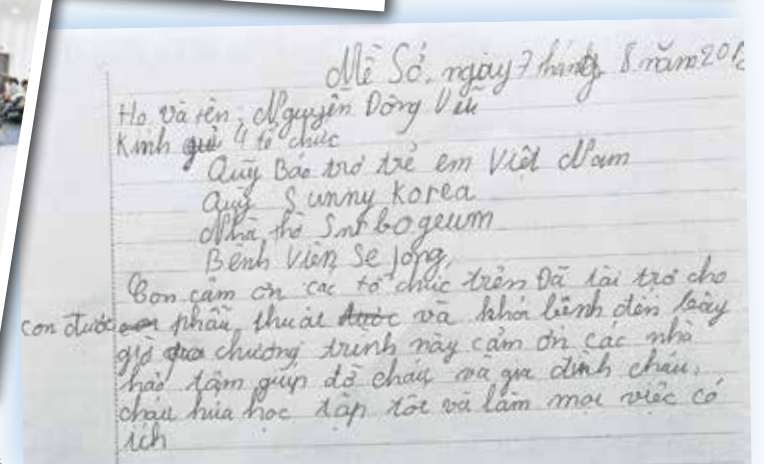 Mề Sở, ngày 7 tháng 8 năm 201
Họ và tên, Nguyễn Đông Vũ
Kính gửi 4 tổ chức
Quỹ Bảo trợ trẻ em Việt Nam
Quỹ Sunny Korea
Nhà thờ Snbogeum
Bệnh Viện Se jong,
Con cảm ơn các tổ chức trên Đã tài trợ cho
con được phẫu thuật và khỏi bệnh đến bây
giờ chương trình này cảm ơn các nhà
hảo tâm giúp đỡ cháu và gia đình cháu,
cháu hứa học tập tốt và làm mọi việc có
ích